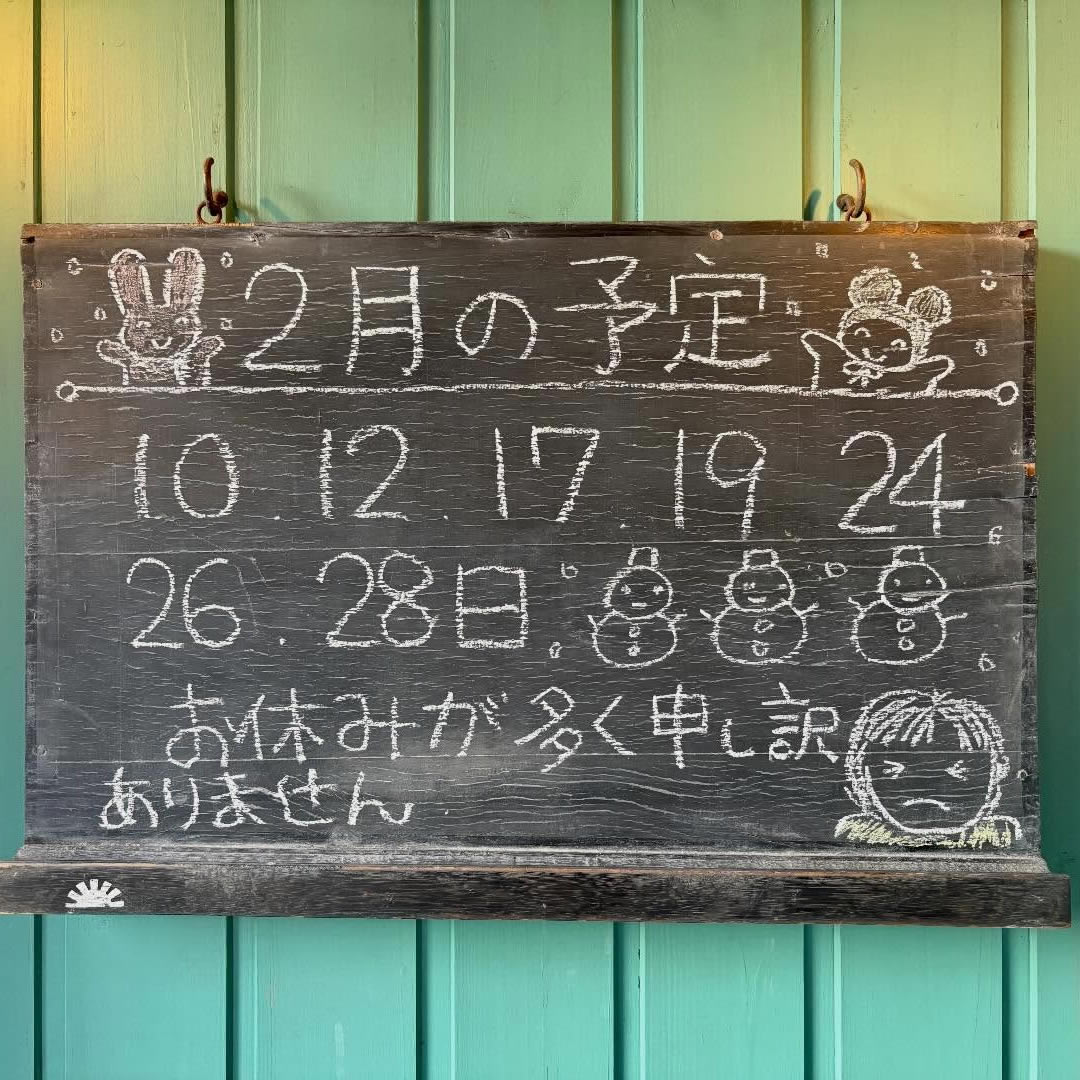 2月の予定
10.12.17.19 24
26.28日.
お休みが多く申し訳
ありません